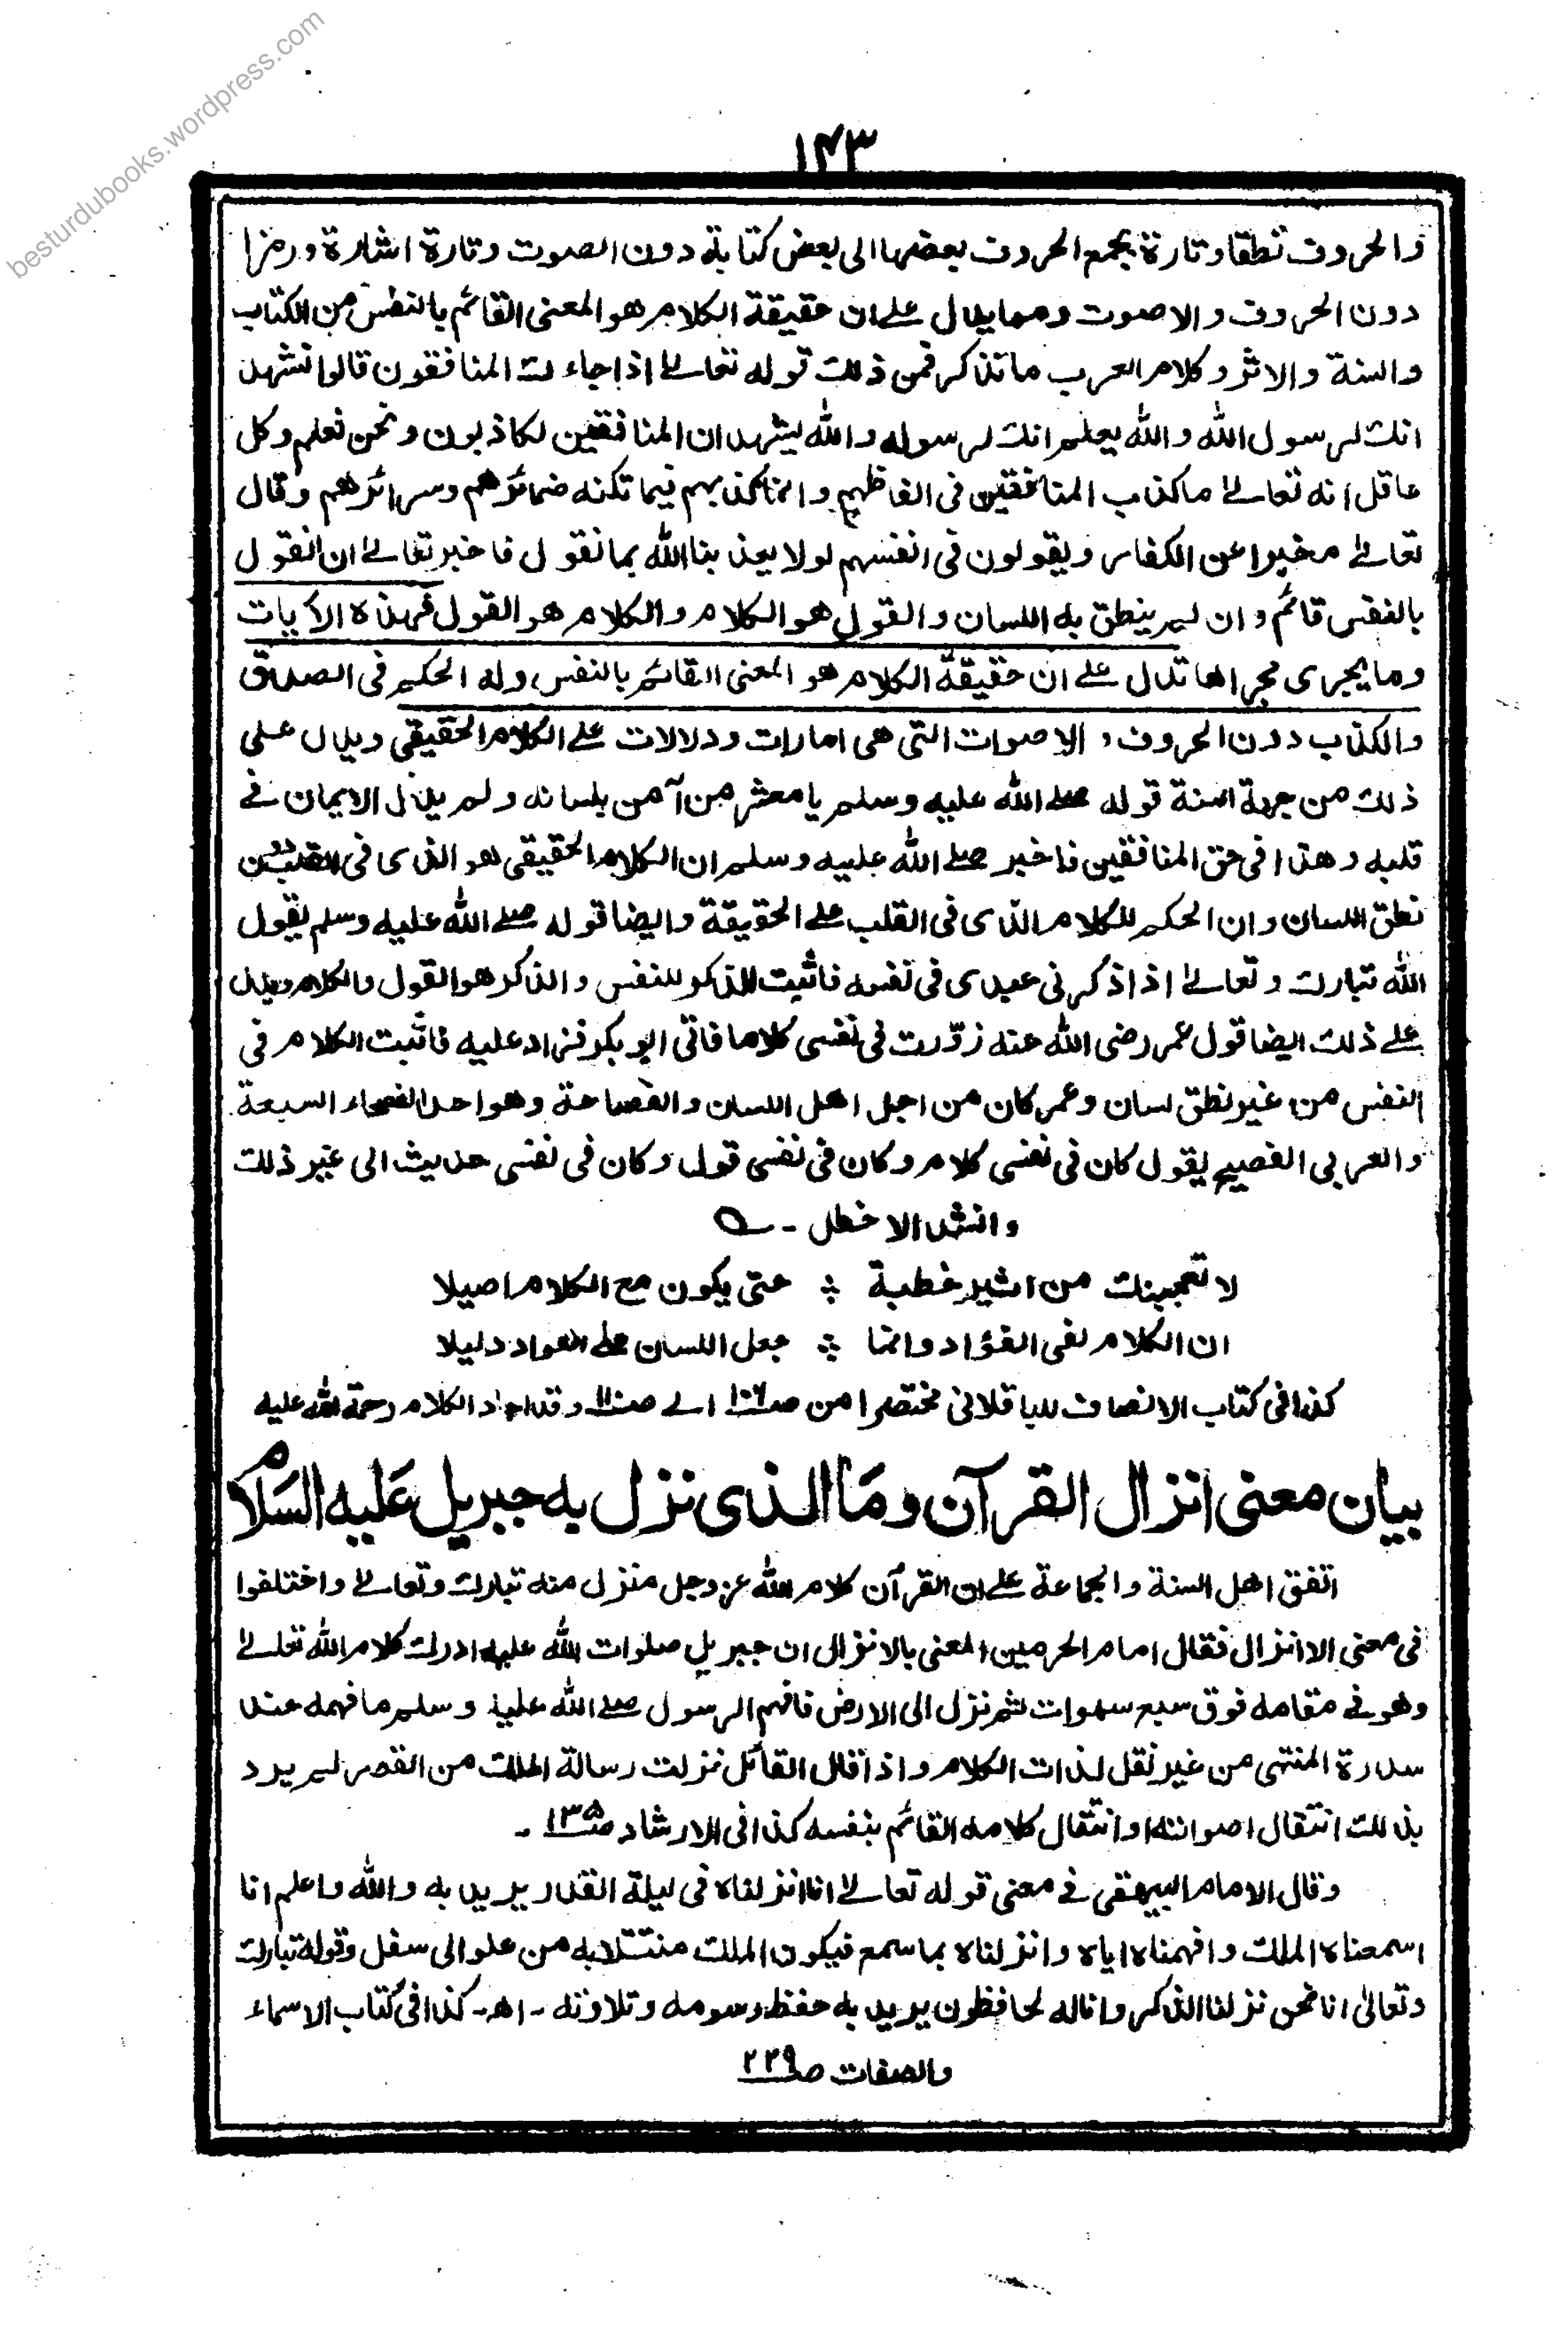 besturdubooks.wordpress.com
۱۴۳
والحروف نطقا وتارة بجمع الحروف بعضها الى بعض كتابة دون الصوت وتارة اشارة ورمزا
دون الحروف والاصوت ومما يدل على ان حقيقة الكلام هو المعنى القائم بالنفس من الكتاب
والسنة والاثر وكلام العرب ما نذكر فمن ذلك قوله تعالى اذا جاءك المنافقون قالوا نشهد
انك لرسول الله والله يعلم انك لرسوله والله يشهد ان المنافقين لكاذبون ونحن نعلم وكل
عاقل انه تعالى ما كذب المنافقين فى الفاظهم وانما كذبهم فيما تكنه ضمائرهم وسرائرهم وقال
تعالى مخبرا عن الكفار ويقولون فى انفسهم لولا يعذبنا الله بما نقول فاخبر تعالى ان القول
بالنفس قائم وان لم ينطق به اللسان والقول هو الكلام والكلام هو القول فهذه الآيات
وما يجرى مجراها تدل على ان حقيقة الكلام هو المعنى القائم بالنفس وله الحكم فى الصدق
والكذب دون الحروف والاصوات التى هى امارات ودلالات على الكلام الحقيقى ويدل على
ذلك من جهة السنة قوله صلى الله عليه وسلم يا معشر من آمن بلسانه ولم يدخل الايمان فى
قلبه وهذا فى حق المنافقين فاخبر صلى الله عليه وسلم ان الكلام الحقيقى هو الذى فى القلب دون
نطق اللسان وان الحكم للكلام الذى فى القلب على الحقيقة وايضا قوله صلى الله عليه وسلم يقول
الله تبارك وتعالى اذا ذكرنى عبدى فى نفسه فاثبت الذكر للنفس والذكر هو القول والكلام ويدل
على ذلك ايضا قول عمر رضى الله عنه زوّرت فى نفسى كلاما فاتى ابو بكر فزاد عليه فاثبت الكلام فى
النفس من غير نطق لسان وعمر كان من اجل اهل اللسان والفصاحة وهو احد الفصحاء السبعة
والعربى الفصيح يقول كان فى نفسى كلام وكان فى نفسى قول وكان فى نفسى حديث الى غير ذلك
وانشد الاخطل -
لا تعجبنك من اثير خطبة ؞ حتى يكون مع الكلام اصيلا
ان الكلام لفى الفؤاد وانما ؞ جعل اللسان على الفواد دليلا
كذا فى كتاب الانصاف للباقلانى مختصرا من الى وقد اجاد الكلام رحمة الله عليه
بيان معنى انزال القرآن وما الذى نزل به جبريل عليه السلام
اتفق اهل السنة والجماعة على ان القرآن كلام الله عز وجل منزل منه تبارك وتعالى واختلفوا
فى معنى الاانزال فقال امام الحرمين المعنى بالانزال ان جبريل صلوات الله عليه ادرك كلام الله تعالى
وهو فى مقامه فوق سبع سموات ثم نزل الى الارض فافهم الرسول صلى الله عليه وسلم ما فهمه عند
سدرة المنتهى من غير نقل لذات الكلام واذا قال القائل نزلت رسالة الملك من القصر لم يرد
بذلك انتقال اصواته او انتقال كلامه القائم بنفسه كذا فى الارشاد صـ۱۳۵ -
وقال الامام البيهقى فى معنى قوله تعالى انا انزلناه فى ليلة القدر يريد به والله واعلم انا
اسمعناه الملك وافهمناه اياه وانزلناه بما سمع فيكون الملك منتقلا به من علو الى سفل وقوله تبارك
وتعالى انا نحن نزلنا الذكر وانا له لحافظون يريد به حفظ رسومه وتلاوته - اهـ - كذا فى كتاب الاسماء
والصفات صـ۲۲۹